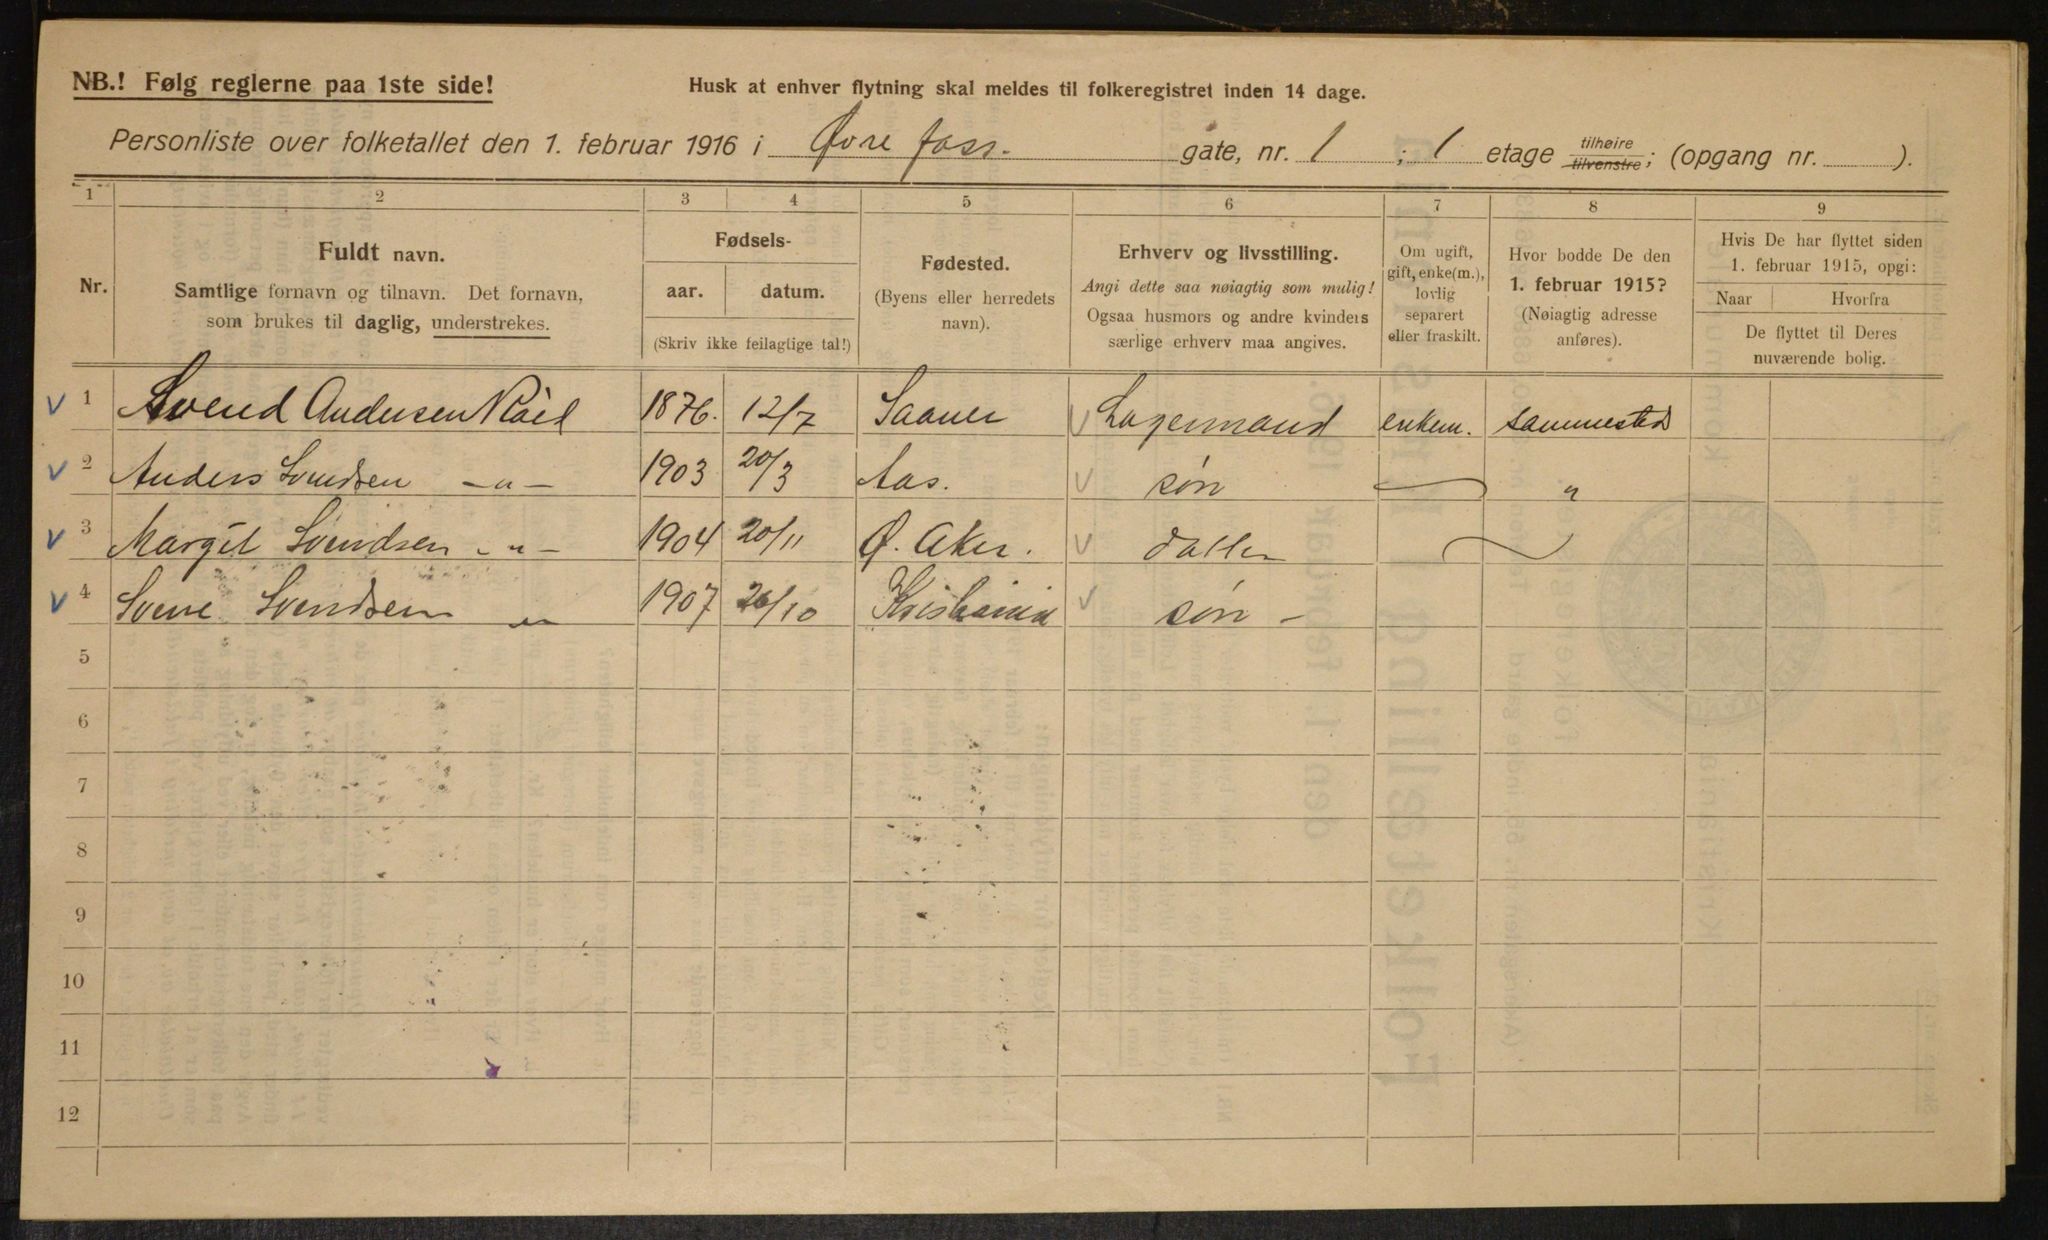 NB.! Følg reglerne paa 1ste side!
Husk at enhver flytning skal meldes til folkeregistret inden 14 dage.
Personliste over folketallet den 1. februar 1916 i Øvre foss. gate, nr. 1 ; 1 etage tilhøire tilvenstre; (opgang nr. ).
1 2 3 4 5 6 7 8 9
Nr.
Fuldt navn.
Samtlige fornavn og tilnavn. Det fornavn,
som brukes til daglig, understrekes.
Fødsels-
aar. datum.
(Skriv ikke feilagtige tal!)
Fødested.
(Byens eller herredets
navn).
Erhverv og livsstilling.
Angi dette saa nøiagtig som mulig!
Ogsaa husmors og andre kvinders
særlige erhverv maa angives.
Om ugift,
gift, enke(m.),
lovlig
separert
eller fraskilt.
Hvor bodde De den
1. februar 1915?
(Nøiagtig adresse
anføres).
Hvis De har flyttet siden
1. februar 1915, opgi:
Naar Hvorfra
De flyttet til Deres
nuværende bolig.
1 Svend Andersen 1876. 12/7 Saaner Lagermand enkem. sammesteds
2 Anders Svendsen -"- 1903 20/3 Aas. søn "
3 Margit Svendsen -"- 1904 20/11 Ø. Aker. datter
4 Svendsen " 1907 26/10 Kristiania søn -
5
6
7
8
9
10
11
12